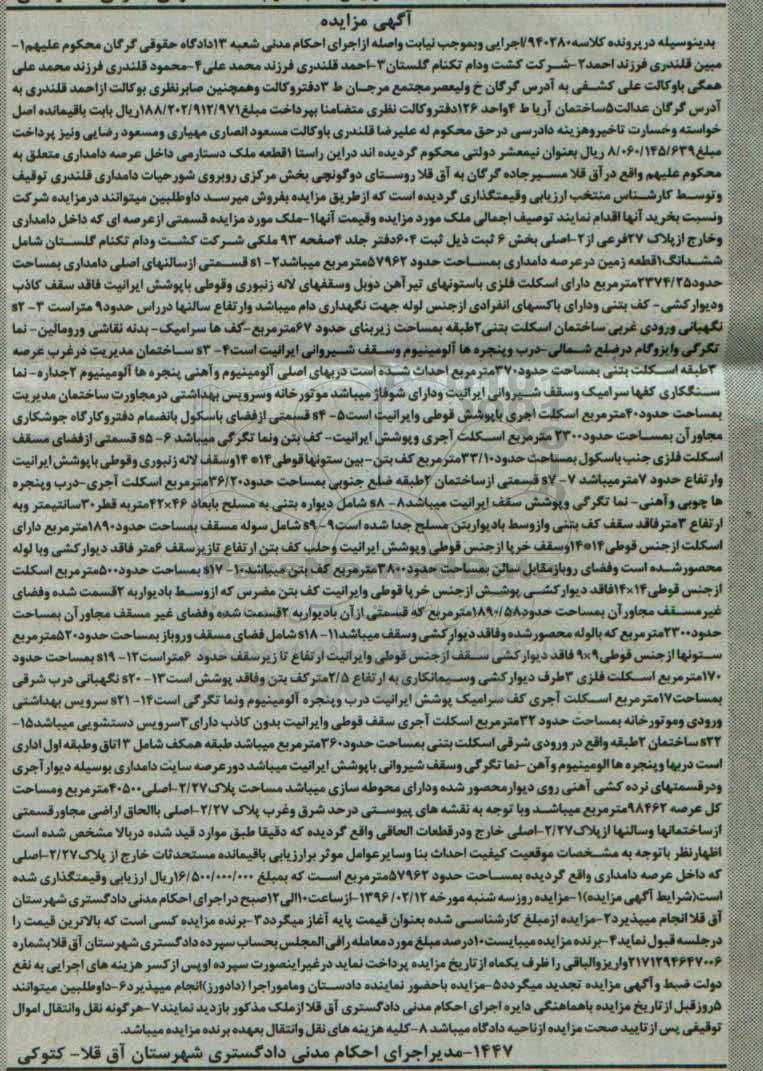 آگهی مزایده
بدینوسیله درپرونده کلاسه۹۴۰۲۸۰/اجرایی وبموجب نیابت واصله ازاجرای احکام مدنی شعبه ۱۳دادگاه حقوقی گرگان محکوم علیهم۱-
مبین قلندری فرزند احمد۲-شرکت کشت ودام تکنام گلستان۳-احمد قلندری فرزند محمد علی۴-محمود قلندری فرزند محمد علی
همگی باوکالت علی کشفی به آدرس گرگان خ ولیعصرمجتمع مرجان ط ۳دفتروکالت وهمچنین صابرنظری بوکالت ازاحمد قلندری به
آدرس گرگان عدالت۵ساختمان آریا ط ۴واحد ۱۲۶دفتروکالت نظری متضامنا بپرداخت مبلغ۱۸۸/۲۰۲/۹۱۲/۹۷۱ریال بابت باقیمانده اصل
خواسته وخسارت تاخیروهزینه دادرسی درحق محکوم له علیرضا قلندری باوکالت مسعود انصاری مهیاری ومسعود رضایی ونیز پرداخت
مبلغ۸/۰۶۰/۱۴۵/۶۳۹ ریال بعنوان نیمعشر دولتی محکوم گردیده اند دراین راستا ۱قطعه ملک دستارمی داخل عرصه دامداری متعلق به
محکوم علیهم واقع درآق قلا مسیرجاده گرگان به آق قلا روستای دوگونچی بخش مرکزی روبروی شورحیات دامداری قلندری توقیف
وتوسط کارشناس منتخب ارزیابی وقیمتگذاری گردیده است که ازطریق مزایده بفروش میرسد داوطلبین میتوانند درمزایده شرکت
ونسبت بخرید آنها اقدام نمایند توصیف اجمالی ملک مورد مزایده وقیمت آنها۱-ملک مورد مزایده قسمتی ازعرصه ای که داخل دامداری
وخارج ازپلاک ۲۷فرعی از۲-اصلی بخش ۶ ثبت ذیل ثبت ۶۰۴دفتر جلد ۴صفحه ۹۳ ملکی شرکت کشت ودام تکنام گلستان شامل
ششدانگ۱قطعه زمین درعرصه دامداری بمساحت حدود ۵۷۹۶۲مترمربع میباشد۲- s۱ قسمتی ازسالنهای اصلی دامداری بمساحت
حدود۲۳۷۴/۲۵مترمربع دارای اسکلت فلزی باستونهای تیرآهن دوبل وسقفهای لانه زنبوری وقوطی باپوشش ایرانیت فاقد سقف کاذب
ودیوارکشی- کف بتنی ودارای باکسهای انفرادی ازجنس لوله جهت نگهداری دام میباشد وارتفاع سالنها درراس حدود۹ متراست ۳- s۲
نگهبانی ورودی غربی ساختمان اسکلت بتنی۲طبقه بمساحت زیربنای حدود ۶۷مترمربع-کف ها سرامیک- بدنه نقاشی ورومالین- نما
تگرگی وایزوگام درضلع شمالی-درب وپنجره ها آلومینیوم وسقف شیروانی ایرانیت است۴- s۳ ساختمان مدیریت درغرب عرصه
۳طبقه اسکلت بتنی بمساحت حدود۳۷۰مترمربع احداث شده است دربهای اصلی آلومینیوم وآهنی پنجره ها آلومینیوم ۲جداره- نما
سنگکاری کفها سرامیک وسقف شیروانی ایرانیت ودارای شوفاژ میباشد موتورخانه وسرویس بهداشتی درمجاورت ساختمان مدیریت
بمساحت حدود۴۰مترمربع اسکلت آجری باپوشش قوطی وایرانیت است۵- s۴ قسمتی ازفضای باسکول بانضمام دفتروکارگاه جوشکاری
مجاورآن بمساحت حدود۲۳۰۰ مترمربع اسکلت آجری وپوشش ایرانیت- کف بتن ونما تگرگی میباشد ۶- s۵ قسمتی ازفضای مسقف
اسکلت فلزی جنب باسکول بمساحت حدود۳۳/۱۰مترمربع کف بتن-بین ستونها قوطی۱۴*۱۴ وسقف لانه زنبوری وقوطی باپوشش ایرانیت
وارتفاع حدود ۷مترمیباشد ۷- s۷ قسمتی ازساختمان ۲طبقه ضلع جنوبی بمساحت حدود۳۶/۲۰مترمربع اسکلت آجری-درب وپنجره
ها چوبی وآهنی- نما تگرگی وپوشش سقف ایرانیت میباشد۸- s۸ شامل دیواره بتنی به مسلح بابعاد ۴۶×۴۲متربه قطر۳۰سانتیمتر وبه
ارتفاع ۳مترفاقد سقف کف بتنی وازوسط بادیواربتن مسلح جدا شده است۹- s۹ شامل سوله مسقف بمساحت حدود۱۸۹۰مترمربع دارای
اسکلت ازجنس قوطی۱۴*۱۴وسقف خرپا ازجنس قوطی وپوشش ایرانیت وحلب کف بتن ارتفاع تازیرسقف ۶متر فاقد دیوارکشی وبا لوله
محصورشده است وفضای روبازمقابل سالن بمساحت حدود۳۸۰۰مترمربع کف بتن میباشد۱۰- s۱۷ بمساحت حدود۵۰۰مترمربع اسکلت
ازجنس قوطی۱۴×۱۴فاقد دیوارکشی پوشش ازجنس خرپا قوطی وایرانیت کف بتن مضرس که ازوسط بادیواربه ۲قسمت شده وفضای
غیرمسقف مجاورآن بمساحت حدود۱۸۹۰/۵۸مترمربع که قسمتی ازآن بادیواربه ۲قسمت شده وفضای غیر مسقف مجاورآن بمساحت
حدود۲۳۰۰مترمربع که بالوله محصورشده وفاقد دیوارکشی وسقف میباشد۱۱- s۱۸ شامل فضای مسقف وروباز بمساحت حدود۵۲۰مترمربع
ستونها ازجنس قوطی۹×۹ فاقد دیوارکشی سقف ازجنس قوطی وایرانیت ارتفاع تا زیرسقف حدود ۶متراست۱۲- s۱۹ بمساحت حدود
۱۷۰مترمربع اسکلت فلزی ۳طرف دیوارکشی وسیمانکاری به ارتفاع ۲/۵مترکف بتن وفاقد پوشش است۱۳- s۲۰ نگهبانی درب شرقی
بمساحت۱۷مترمربع اسکلت آجری کف سرامیک پوشش ایرانیت درب وپنجره آلومینیوم ونما تگرگی است۱۴- s۲۱ سرویس بهداشتی
ورودی وموتورخانه بمساحت حدود ۳۲مترمربع اسکلت آجری سقف قوطی وایرانیت بدون کاذب دارای۳سرویس دستشویی میباشد۱۵-
s۲۲ ساختمان ۲طبقه واقع در ورودی شرقی اسکلت بتنی بمساحت حدود۳۶۰مترمربع میباشد طبقه همکف شامل ۱۳اتاق وطبقه اول اداری
است دربها وپنجره ها الومینیوم وآهن-نما تگرگی وسقف شیروانی باپوشش ایرانیت میباشد دورعرصه سایت دامداری بوسیله دیوارآجری
ودرقسمتهای نرده کشی آهنی روی دیوارمحصور شده ودارای محوطه سازی میباشد مساحت پلاک۲/۲۷-اصلی۴۰۵۰۰مترمربع ومساحت
کل عرصه ۹۸۴۶۲مترمربع میباشد وبا توجه به نقشه های پیوستی درحد شرق وغرب پلاک ۲/۲۷-اصلی باالحاق اراضی مجاورقسمتی
ازساختمانها وسالنها ازپلاک۲/۲۷-اصلی خارج ودرقطعات الحاقی واقع گردیده که دقیقا طبق موارد قید شده دربالا مشخص شده است
اظهارنظر باتوجه به مشخصات موقعیت کیفیت احداث بنا وسایرعوامل موثر برارزیابی باقیمانده مستحدثات خارج از پلاک۲/۲۷-اصلی
که داخل عرصه دامداری واقع گردیده بمساحت حدود ۵۷۹۶۲مترمربع است که بمبلغ ۱۶/۵۰۰/۰۰۰/۰۰۰ریال ارزیابی وقیمتگذاری شده
است(شرایط آگهی مزایده)۱-مزایده روزسه شنبه مورخه ۱۳۹۶/۰۲/۱۲-ازساعت۱۰الی۱۲صبح دراجرای احکام مدنی دادگستری شهرستان
آق قلاانجام میپذیرد۲-مزایده ازمبلغ کارشناسی شده بعنوان قیمت پایه آغاز میگردد۳-برنده مزایده کسی است که بالاترین قیمت را
درجلسه قبول نماید۴-برنده مزایده میبایست۱۰درصد مبلغ مورد معامله رافی المجلس بحساب سپرده دادگستری شهرستان آق قلابشماره
۲۱۷۱۲۹۴۶۴۷۰۰۶واریزوالباقی را ظرف یکماه ازتاریخ مزایده پرداخت نماید درغیراینصورت سپرده اوپس ازکسر هزینه های اجرایی به نفع
دولت ضبط وآگهی مزایده تجدید میگردد۵-مزایده باحضور نماینده دادستان وماموراجرا (دادورز)انجام میپذیرد۶-داوطلبین میتوانند
۵روزقبل ازتاریخ مزایده باهماهنگی دایره اجرای احکام مدنی دادگستری آق قلا ازملک مذکور بازدید نمایند۷-هرگونه نقل وانتقال اموال
توقیفی پس ازتایید صحت مزایده ازناحیه دادگاه میباشد ۸-کلیه هزینه های نقل وانتقال بعهده برنده مزایده میباشد.
۱۴۴۷-مدیراجرای احکام مدنی دادگستری شهرستان آق قلا- کتوکی